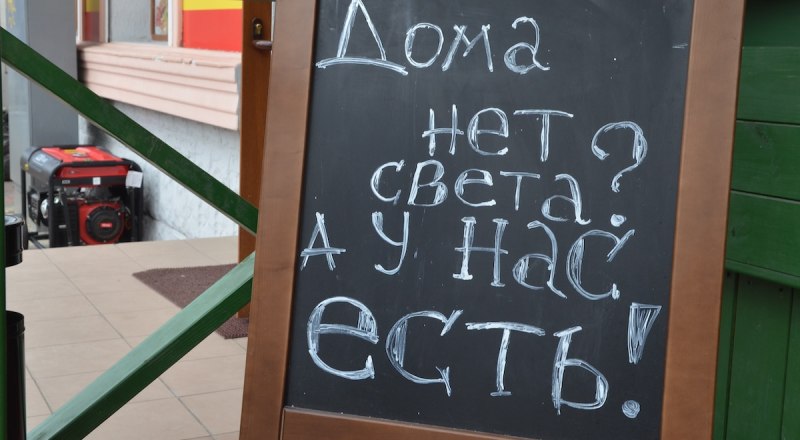 Дома
нет
света?
А у нас
есть!